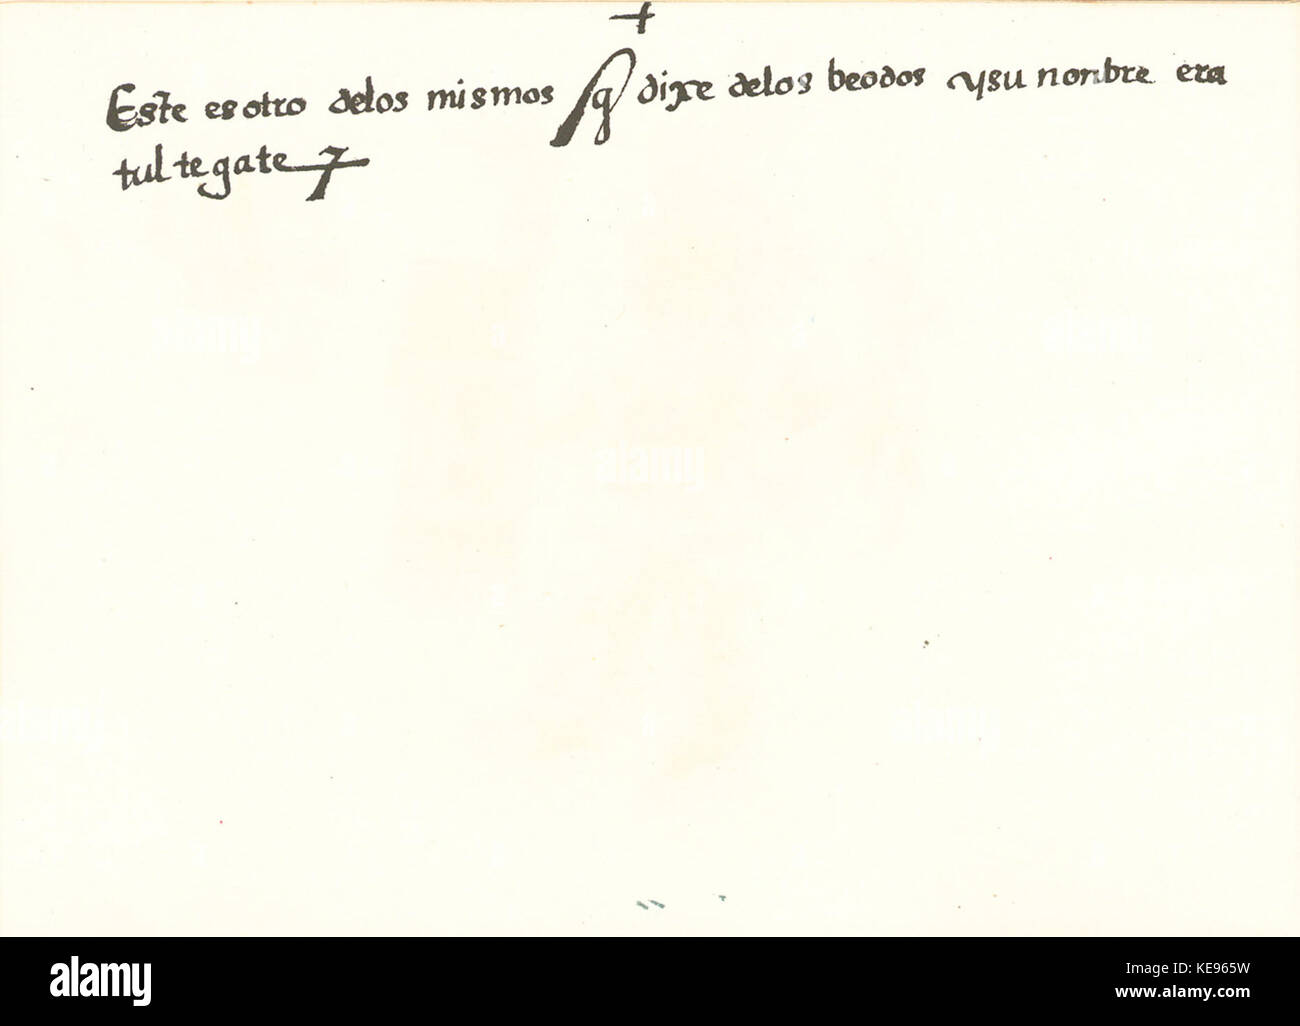 +
Este es otro delos mismos q dixe delos beodos ysu nonbre era
tultegate
alamy
Image ID: KE965W
www.alamy.com